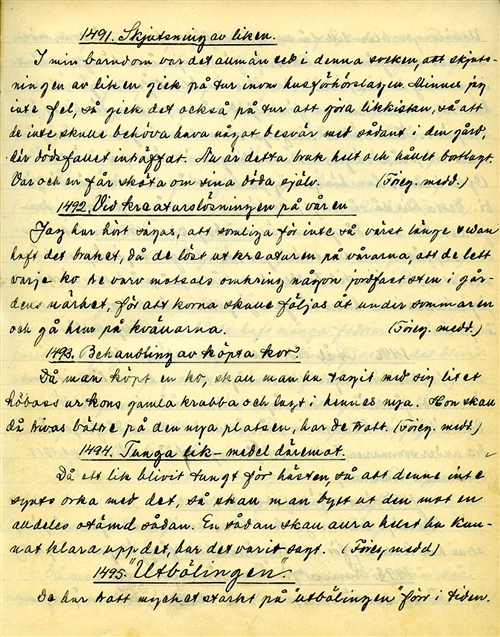 1491. Skjutsning av liken.
I min barndom var det allmän sed i denna socken, att skjuts-
ningen av liken gick på tur inom husförhörslagen. Minnes jag
inte fel, så gick det också på tur att göra likkistan, så att
de inte skulle behöva hava något besvär med sådant i den gård,
där dödsfallet inträffat. Nu är detta bruk helt och hållet bortlagt.
Var och en får sköta om sina döda själv. (Föreg. medd.)
1492. Vid kreaturslösningen på våren
Jag har hört sägas, att somliga för inte så värst länge sedan
haft det bruket, då de löst ut kreaturen på vårarna, att de lett
varje ko tre varv motsols omkring någon jordfast sten i går-
dens närhet, för att korna skulle följas åt under sommaren
och gå hem på kvällarna. (Föreg. medd.)
1493. Behandling av köpta kor?
Då man köpt en ko, skall man ha tagit med sig litet
höboss ur kons gamla krubba och lagt i hennes nya. Hon skall
då trivas bättre på den nya platsen, har de trott. (Föreg. medd.)
1494. Tunga lik - medel däremot.
Då ett lik blivit tungt för hästen, så att denne inte
synts orka med det, så skall man bytt ut den mot en
alldeles otämd sådan. En sådan skall allra helst ha kun-
nat klara upp det, har det varit sagt. (Föreg medd)
1495. "Utbölingen".
De har trott mycket starkt på "utbölingen" förr i tiden.